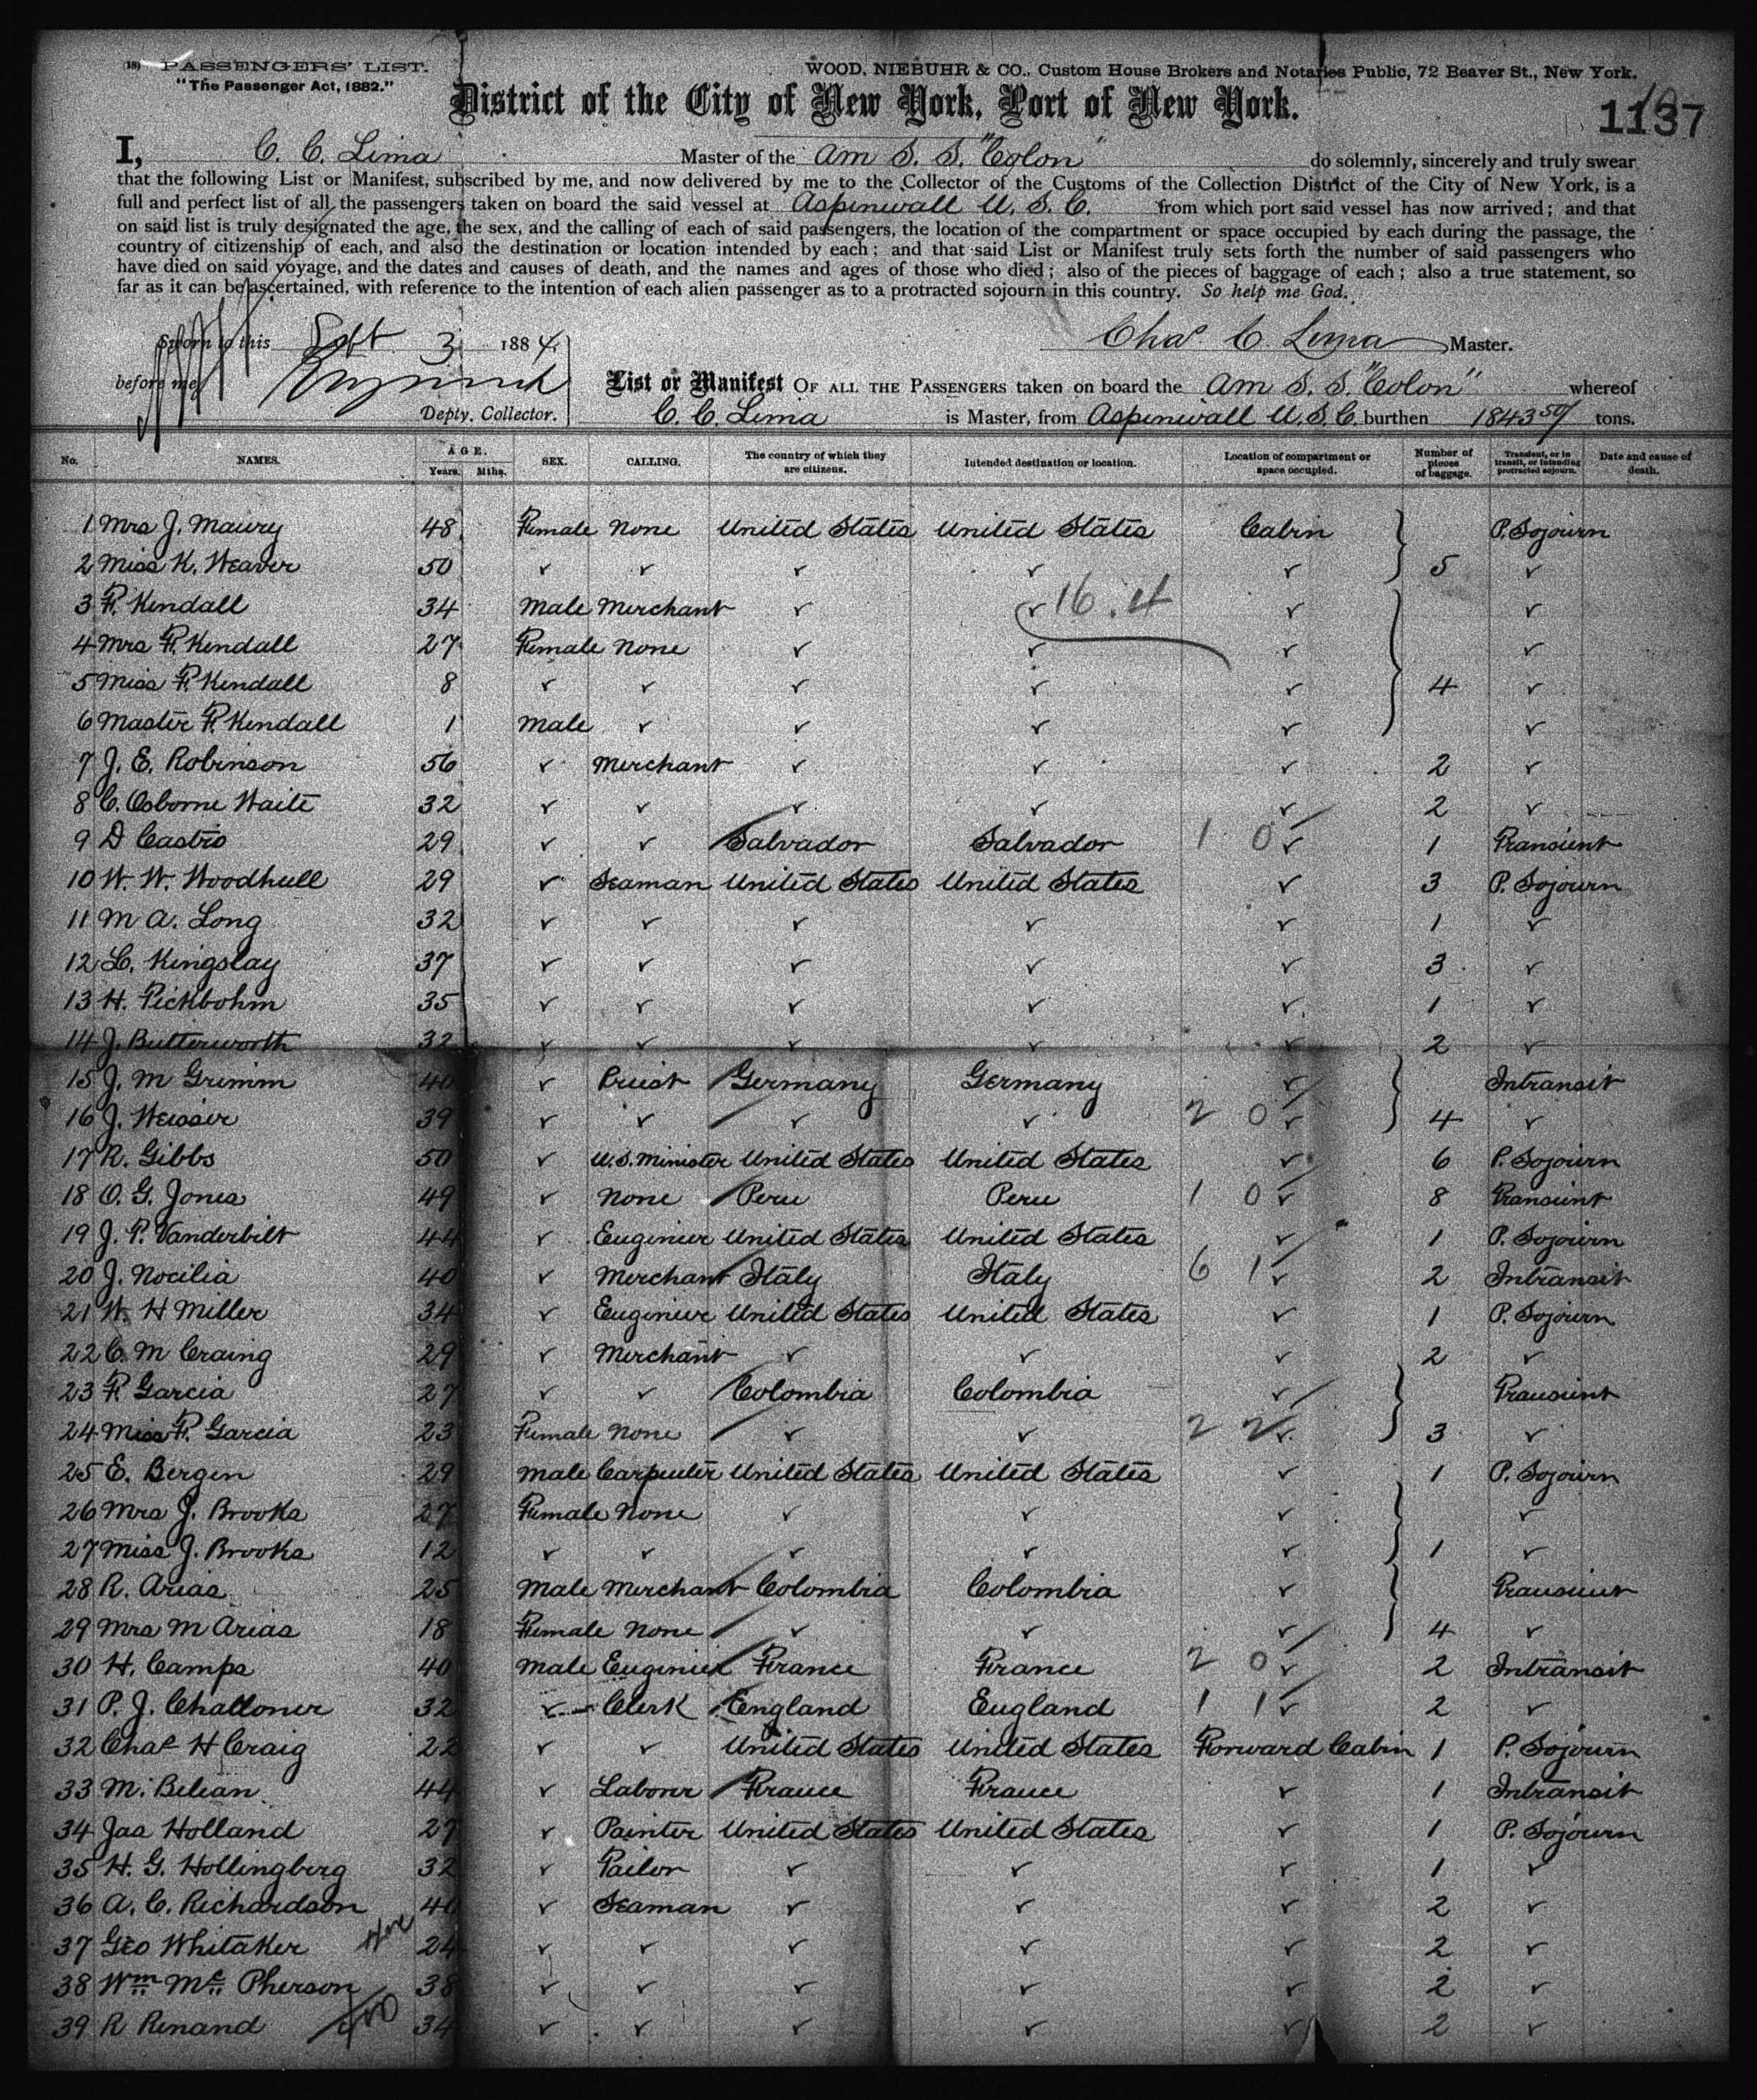 (18) PASSENGERS' LIST.
"The Passenger Act, 1882."
WOOD, NIEBUHR & CO., Custom House Brokers and Notaries Public, 72 Beaver St., New York.
District of the City of New York, Port of New York.
1137
I, C. C. Lima Master of the Am S. S. "Colon" do solemnly, sincerely and truly swear
that the following List or Manifest, subscribed by me, and now delivered by me to the Collector of the Customs of the Collection District of the City of New York, is a
full and perfect list of all the passengers taken on board the said vessel at Aspinwall U. S. C. from which port said vessel has now arrived; and that
on said list is truly designated the age, the sex, and the calling of each of said passengers, the location of the compartment or space occupied by each during the passage, the
country of citizenship of each, and also the destination or location intended by each; and that said List or Manifest truly sets forth the number of said passengers who
have died on said voyage, and the dates and causes of death, and the names and ages of those who died; also of the pieces of baggage of each; also a true statement, so
far as it can be ascertained, with reference to the intention of each alien passenger as to a protracted sojourn in this country. So help me God.
Sworn to this Sept 3 1884.
Chas. C. Lima Master.
before me,
Depty. Collector.
List or Manifest OF ALL THE PASSENGERS taken on board the Am S. S. "Colon" whereof
C. C. Lima is Master, from Aspinwall U. S. C. burthen 1843 50/ tons.
No. NAMES. AGE. Years. Mths. SEX. CALLING. The country of which they are citizens. Intended destination or location. Location of compartment or space occupied. Number of pieces of baggage. Transient, or in transit, or intending protracted sojourn. Date and cause of death.
1 Mrs J. Maury 48 Female None United States United States Cabin P. Sojourn
2 Miss K. Weaver 50 ✓ ✓ ✓ ✓ ✓ 5 ✓
3 F. Kendall 34 Male Merchant ✓ ✓ 16.4 ✓ ✓
4 Mrs F. Kendall 27 Female None ✓ ✓ ✓ ✓
5 Miss F. Kendall 8 ✓ ✓ ✓ ✓ ✓ 4 ✓
6 Master F. Kendall 1 Male ✓ ✓ ✓ ✓ ✓
7 J. E. Robinson 56 ✓ Merchant ✓ ✓ ✓ 2 ✓
8 C. Osborne Waite 32 ✓ ✓ ✓ ✓ ✓ 2 ✓
9 D Castro 29 ✓ ✓ Salvador Salvador 1 0 ✓ 1 Transient
10 W. W. Woodhull 29 ✓ Seaman United States United States ✓ 3 P. Sojourn
11 M A. Long 32 ✓ ✓ ✓ ✓ ✓ 1 ✓
12 L. Kingslay 37 ✓ ✓ ✓ ✓ ✓ 3 ✓
13 H. Pickbohm 35 ✓ ✓ ✓ ✓ ✓ 1 ✓
14 J. Butterworth 32 ✓ ✓ ✓ ✓ ✓ 2 ✓
15 J. M Grimm 40 ✓ Priest Germany Germany ✓ Intransit
16 J. Weisser 39 ✓ ✓ ✓ ✓ 2 0 ✓ 4 ✓
17 R. Gibbs 50 ✓ U.S. Minister United States United States ✓ 6 P. Sojourn
18 O. G. Jones 49 ✓ None Peru Peru 1 0 ✓ 8 Transient
19 J. P. Vanderbilt 44 ✓ Enginier United States United States ✓ 1 P. Sojourn
20 J. Nocilia 40 ✓ Merchant Italy Italy 6 1 ✓ 2 Intransit
21 W. H Miller 34 ✓ Enginier United States United States ✓ 1 P. Sojourn
22 C. M Craing 29 ✓ Merchant ✓ ✓ ✓ 2 ✓
23 F. Garcia 27 ✓ ✓ Colombia Colombia ✓ Transient
24 Miss F. Garcia 23 Female None ✓ ✓ 2 2 ✓ 3 ✓
25 E. Bergen 29 Male Carpenter United States United States ✓ 1 P. Sojourn
26 Mrs J. Brooks 27 Female None ✓ ✓ ✓ ✓
27 Miss J. Brooks 12 ✓ ✓ ✓ ✓ ✓ 1 ✓
28 R. Arias 25 Male Merchant Colombia Colombia ✓ Transient
29 Mrs M Arias 18 Female None ✓ ✓ ✓ 4 ✓
30 H. Camps 40 Male Enginier France France 2 0 ✓ 2 Intransit
31 P. J. Challoner 32 ✓ Clerk England England 1 1 ✓ 2 ✓
32 Chas H Craig 22 ✓ ✓ United States United States Forward Cabin 1 P. Sojourn
33 M. Belean 44 ✓ Laborer France France ✓ 1 Intransit
34 Jas Holland 27 ✓ Painter United States United States ✓ 1 P. Sojourn
35 H. G. Hollingberg 32 ✓ Tailor ✓ ✓ ✓ 1 ✓
36 A. C. Richardson ✓ Seaman ✓ ✓ ✓ 2 ✓
37 Geo Whitaker 24 ✓ ✓ ✓ ✓ ✓ 2 ✓
38 Wm Mc Pherson 38 ✓ ✓ ✓ ✓ ✓ 2 ✓
39 R Renand 34 ✓ ✓ ✓ ✓ ✓ 2 ✓